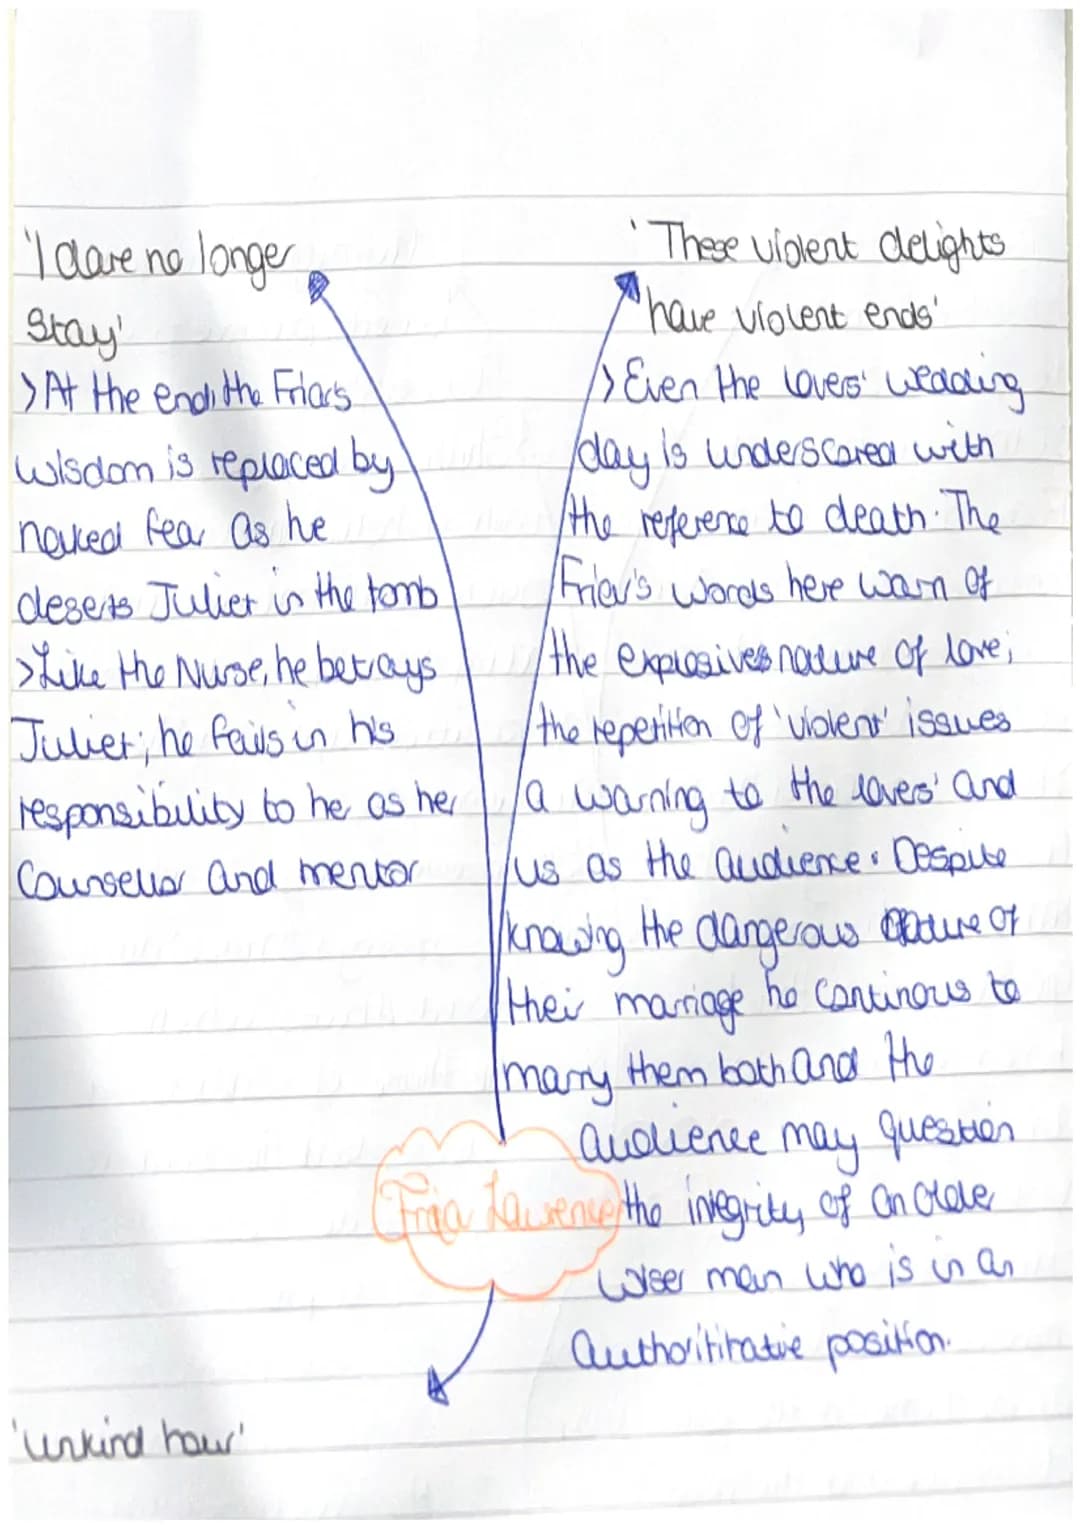 'I dare no longer
Stay'
>At the end, the Friars
wisdom is replaced by
naked fear as he
deserts Juliet in the tomb
>Like the Nurse, he betrays
Juliet; he fails in his
responsibility to he as her
Counsellor and mentor
'These violent delights
have violent ends'
>Even the lovers' wedding
day is underscored with
the reference to death. The
Friar's words here warn of
the explosives nature of love;
the repetition of 'violent' issues
a warning to the lovers' and
us as the audience. Despite
knowing the dangerous nature of
their marriage he continous to
marry them both and the
audience may question
the integrity of an older
wiser man who is in an
authorititative position.
Friar Lawrence
'unkind hour'